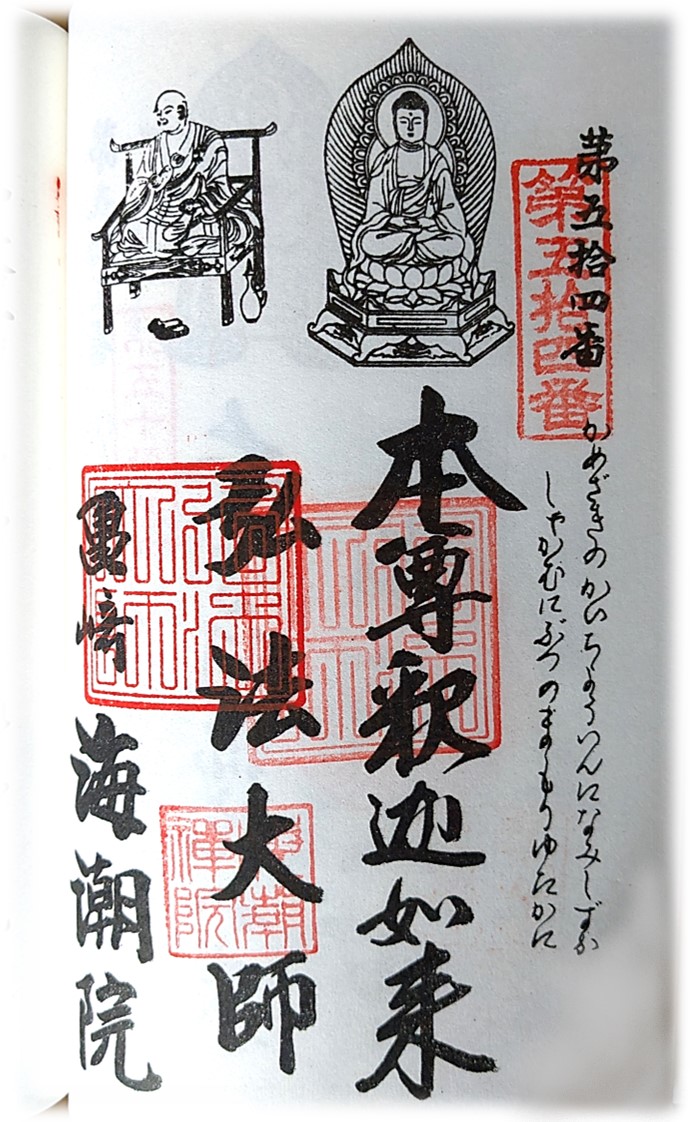 第五拾四番
第五拾四番
かめざきのかいちょういんになみしずか
しゃかむにぶつのまもりゆたかに
本尊釈迦如来
弘法大師
海潮禪院
亀崎 海潮院